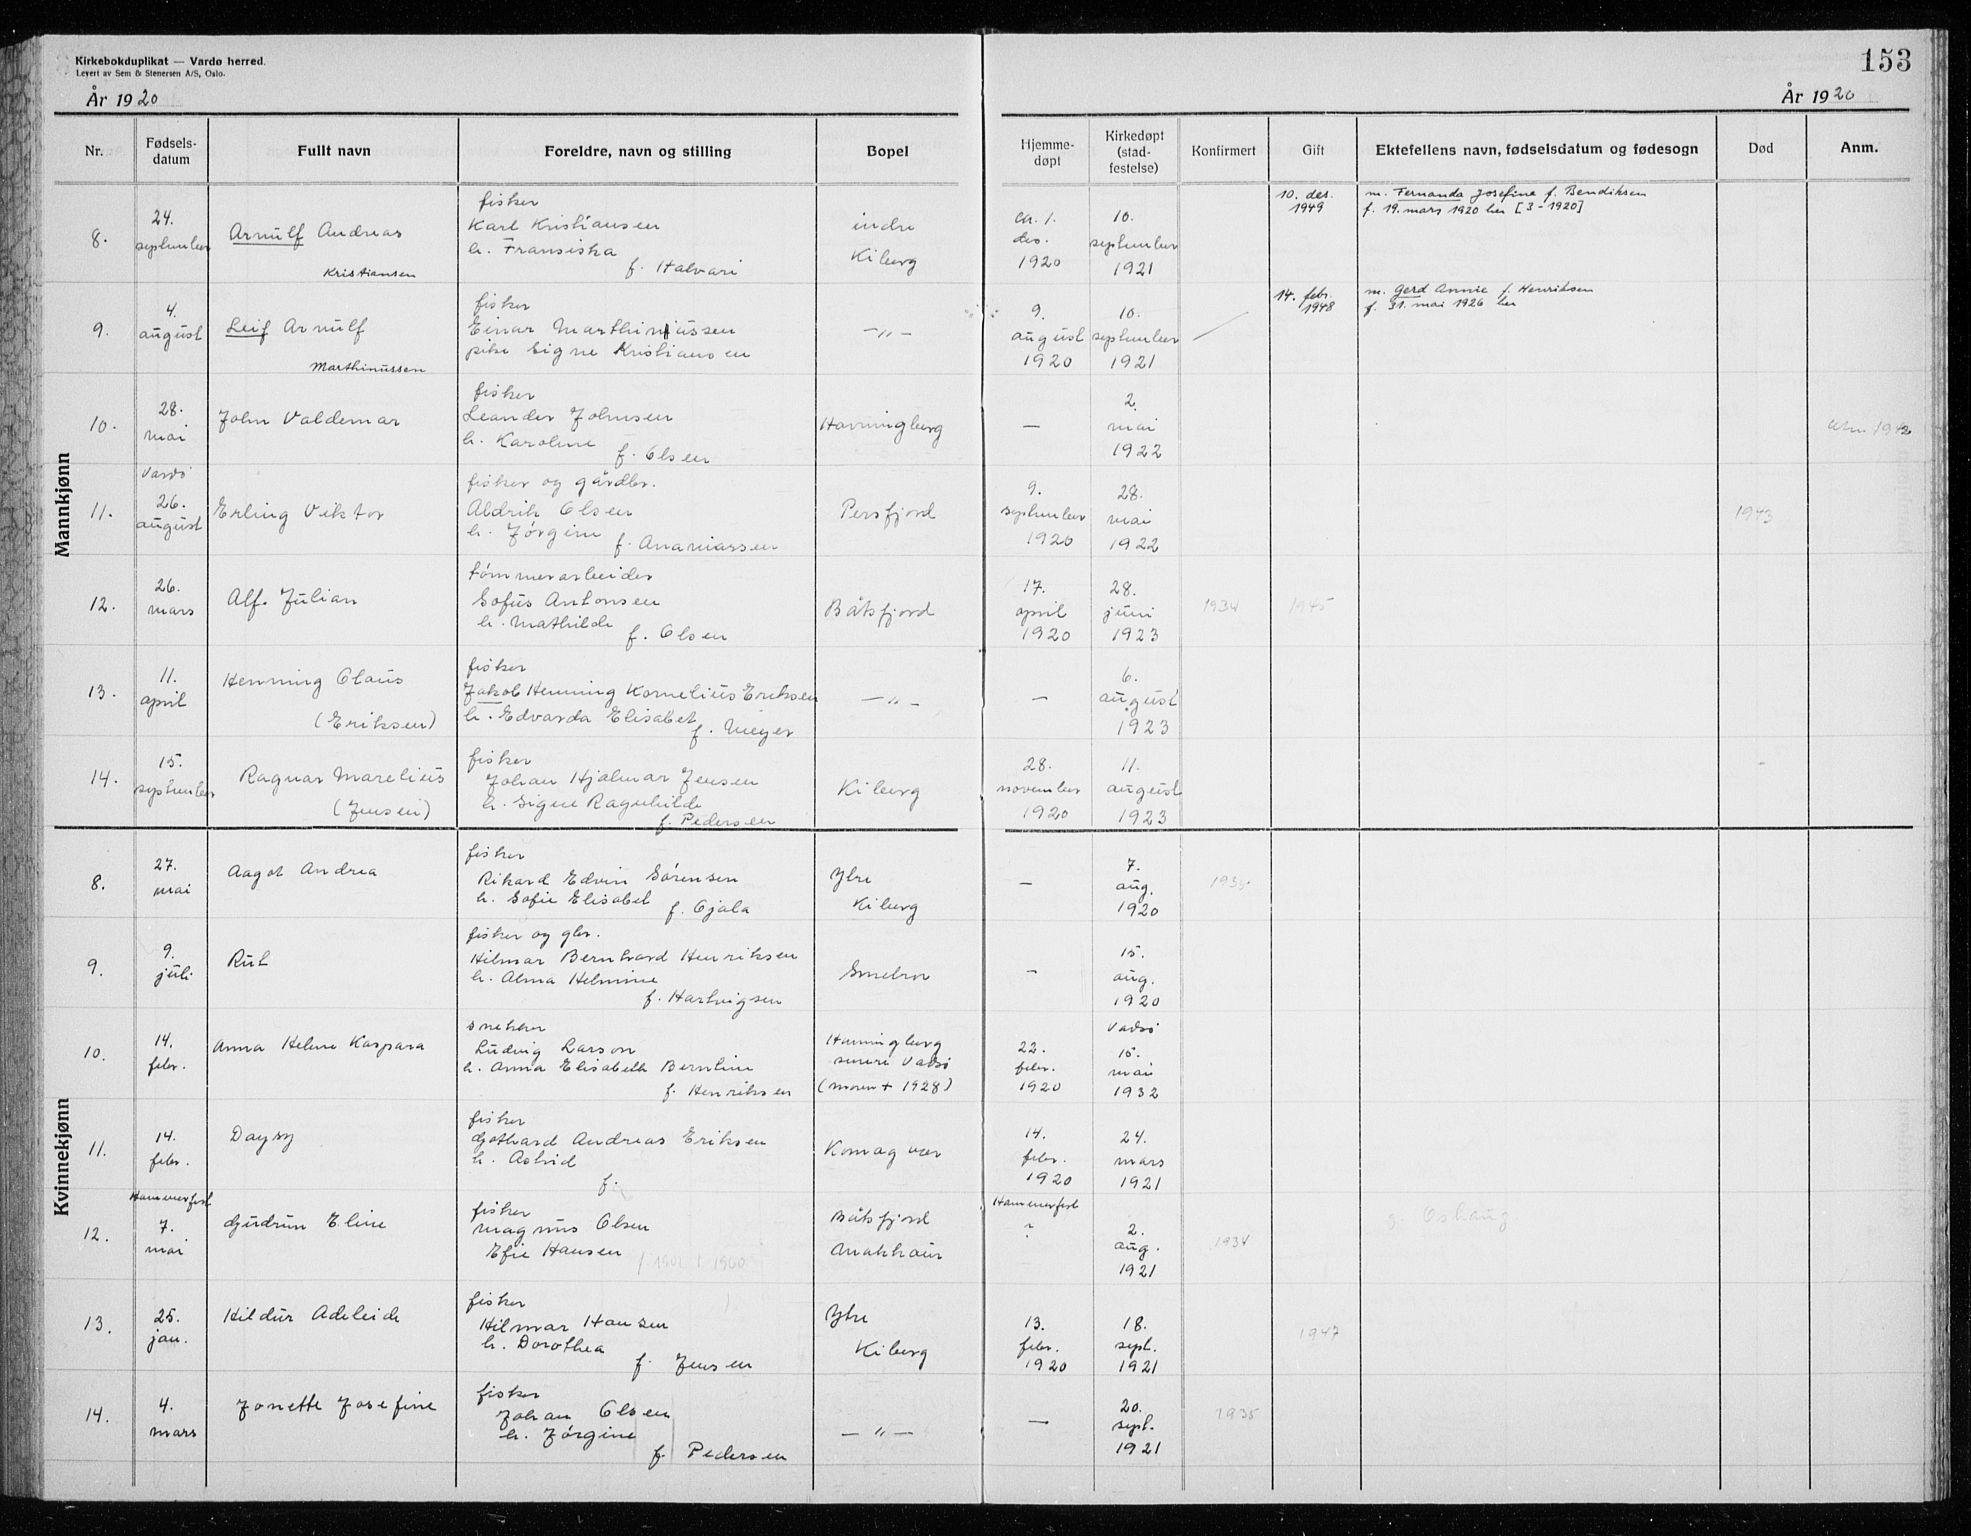 Kirkebokduplikat — Vardø herred.
Levert av Sem & Stenersen A/S, Oslo.
153
År 1920
År 1920
Nr. Fødsels-datum Fullt navn Foreldre, navn og stilling Bopel Hjemme-døpt Kirkedøpt (stad-festelse) Konfirmert Gift Ektefellens navn, fødselsdatum og fødesogn Død Anm.
Mannkjønn
8.
24.
september
Arnulf Andreas
Kristiansen
fisker
Karl Kristiansen
h. Fransiska
f. Halvari
indre
Kiberg
ca. 1.
des.
1920
10.
september
1921
10. des.
1949
m. Fernanda Josefine f. Bendiksen
f. 19. mars 1920 her [3-1920]
9.
4.
august
Leif Arnulf
Marthinussen
fisker
Einar Marthinussen
pike Signe Kristiansen
—〃—
9.
august
1920
10.
september
1921
14. febr.
1948
m. Gerd Annie f. Henriksen
f. 31. mai 1926 her
10.
28.
mai
John Valdemar
fisker
Leander Johnsen
h. Karoline
f. Olsen
Havningberg
—
2.
mai
1922
11.
Vardø
26.
august
Erling Viktor
fisker og gårdbr.
Aldrik Olsen
h. Jørgine
f. Ananiassen
Persfjord
9.
september
1920
28.
mai
1922
1943
12.
26.
mars
Alf. Julian
tømmerarbeider
Sofus Antonsen
h. Mathilde
f. Olsen
Båtsfjord
17.
april
1920
28.
juni
1923
1934
1945
13.
11.
april
Henning Claus
(Eriksen)
fisker
Jakob Henning Kornelius Eriksen
h. Edvarda Elisabet
f. Meyer
—〃—
—
6.
august
1923
14.
15.
september
Ragnar Marelius
(Jensen)
fisker
Johan Hjalmar Jensen
h. Signe Ragnhilde
f. Pedersen
Kiberg
28.
november
1920
11.
august
1923
Kvinnekjønn
8.
27.
mai
Aagot Andrea
fisker
Rikard Edvin Sørensen
h. Sofie Elisabet
f. Ojala
Ytre
Kiberg
—
7.
aug.
1920
1935
9.
9.
juli
Rut
fisker og gbr.
Hilmar Bernhard Henriksen
h. Alma Helmine
f. Hartvigsen
Smelror
—
15.
aug.
1920
10.
14.
febr.
Anna Helene Kaspara
snekker
Ludvig Larson
h. Anna Elisabeth Berntine
f. Henriksen
Havningberg
senere Vadsø
(moren + 1928)
22.
febr.
1920
Vadsø
15.
mai
1932
11.
14.
febr.
Daysy
fisker
Gothard Andreas Eriksen
h. Astrid
f.
Komagvær
14.
febr.
1920
24.
mars
1921
12.
Hammerfest
7.
mai
Gudrun Eline
fisker
Magnus Olsen
Efie Hansen
Båtsfjord
Hammerfest
?
2.
aug.
1921
1934
g. Oshaug
13.
25.
jan.
Hildur Adeleide
fisker
Hilmar Hansen
h. Dorothea
f. Jensen
Ytre
Kiberg
13.
febr.
1920
18.
sept.
1921
1947
14.
4.
mars
Jonette Josefine
fisker
Johan Olsen
h. Jørgine
f. Pedersen
—〃—
—
20.
sept.
1921
1935